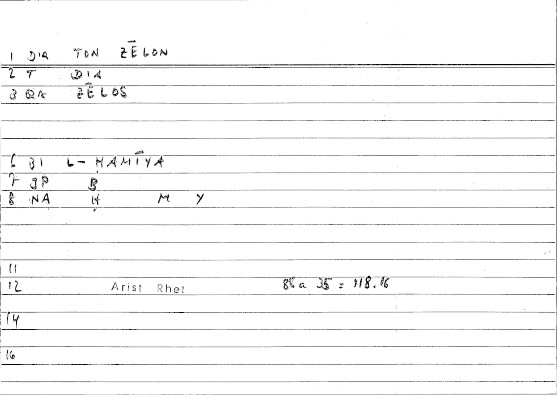 1 DIA TON ZĒLON
2 T DIA
3 QA ZĒLOS
6 BI L-ḤAMĪYA
7 gP B
8 NA Ḥ M Y
11
12 Arist Rhet 88 a 35 = 118.16
14
16